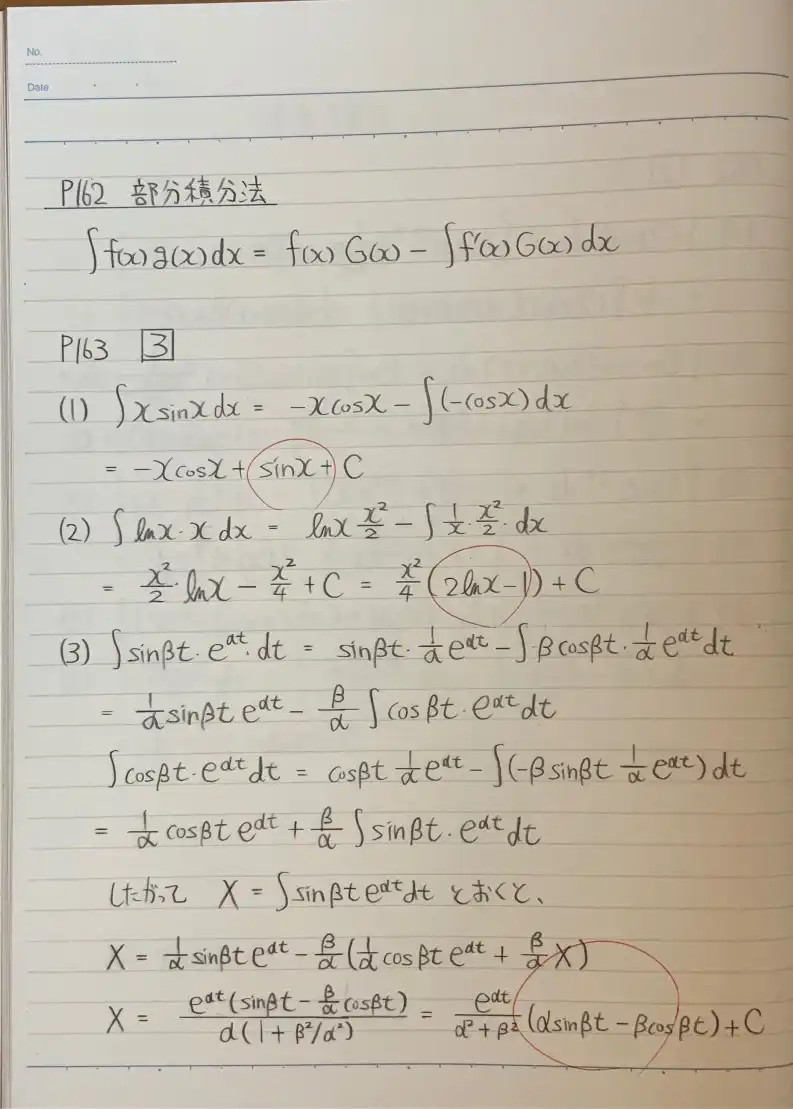 No.
Date
P162 部分積分法
∫f(x)g(x)dx = f(x)G(x) - ∫f'(x)G(x)dx
P163 3
(1) ∫x sinx dx = -x cosx - ∫(-cosx)dx
= -x cosx + sinx + C
(2) ∫ lnx · x dx = lnx x²/2 - ∫ 1/x · x²/2 · dx
= x²/2 · lnx - x²/4 + C = x²/4 (2lnx - 1) + C
(3) ∫sinβt · e^αt · dt = sinβt · 1/α e^αt - ∫βcosβt · 1/α e^αt dt
= 1/α sinβt e^αt - β/α ∫cosβt · e^αt dt
∫cosβt · e^αt dt = cosβt 1/α e^αt - ∫(-β sinβt 1/α e^αt)dt
= 1/α cosβt e^αt + β/α ∫sinβt · e^αt dt
したがって X = ∫sinβt e^αt dt とおくと、
X = 1/α sinβt e^αt - β/α (1/α cosβt e^αt + β/α X)
X = e^αt (sinβt - β/α cosβt) / α(1 + β²/α²) = e^αt / α² + β² (αsinβt - βcosβt) + C